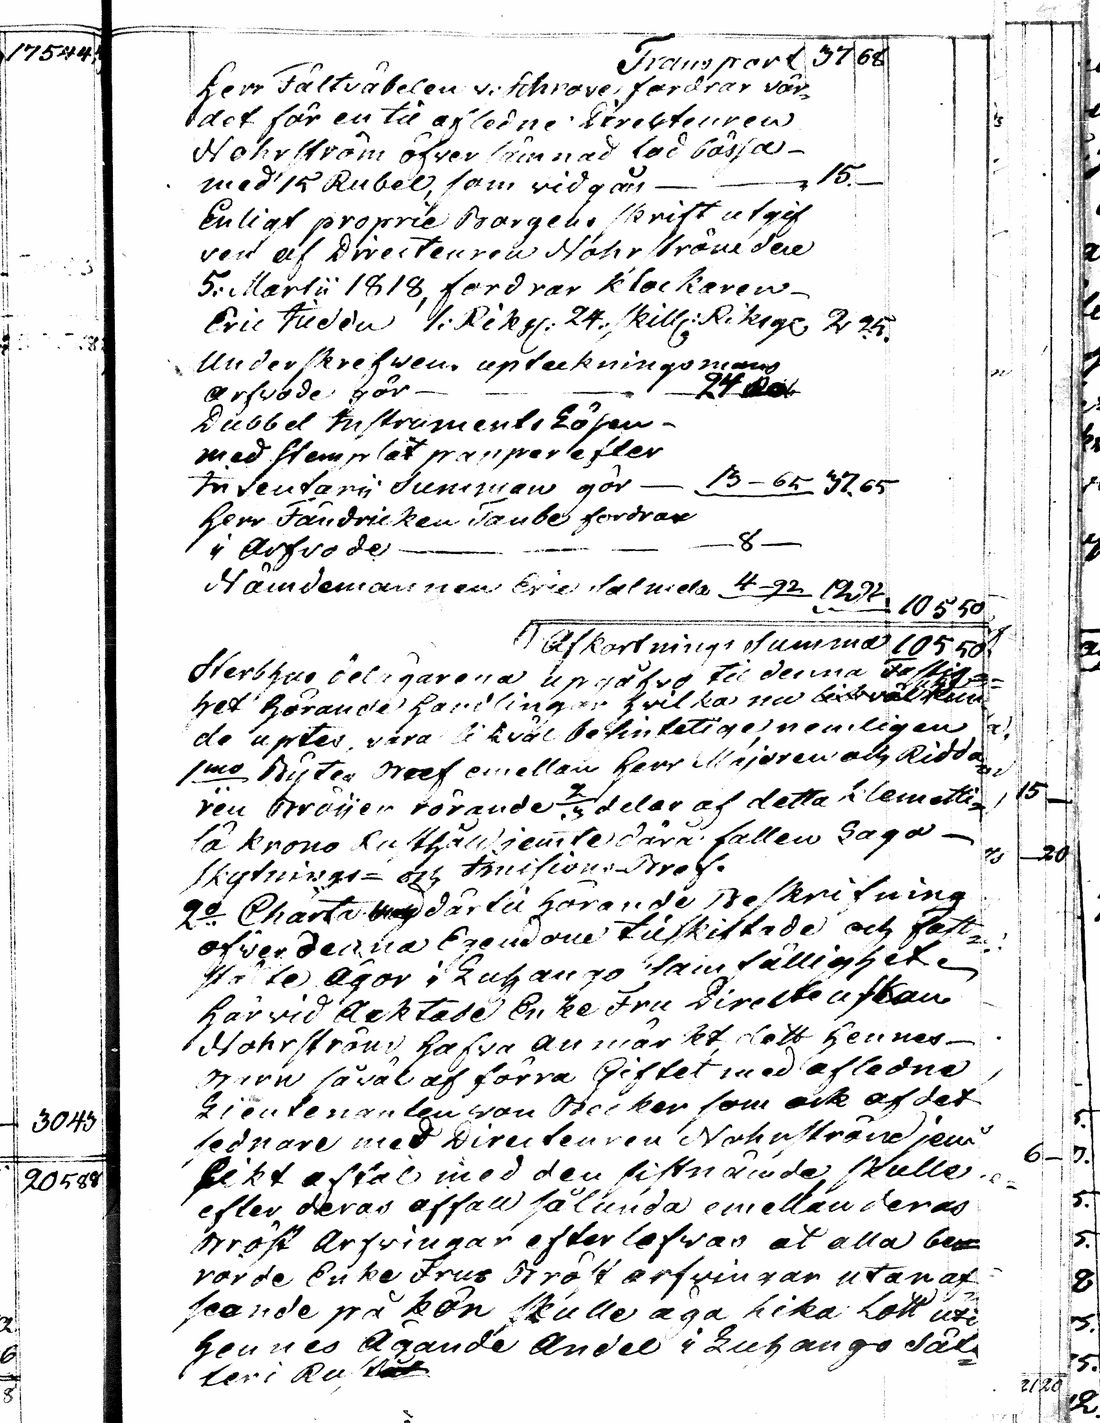 17544
Transport 37 68
Herr Fältväbelen v. Schrove fordrar vär-
det för en til afledne Directeuren
Nohrström öfverlämnad lod bössa -
med 15 Rubel, som vidgås — 15. —
Enligt proprie Borgens skrift utgif
ven af Directeuren Nohrström den
5. Martii 1818, fordrar klockaren -
Eric 1: Riksg: 24. skill: Riksgs 2 25.
Underskrefwen upteckningsmans
arfvode gör — 24
Dubbel Instruments Lösen -
med stemplat papper efter
Inventarii Summan gör — 13 - 65 37. 65
Herr Fändricken Taube fordrar
i Arfvode — 8 —
Nämdemannen Eric 4 - 92 12 92. 105 50
Afkortnings Summa 105 50.
Sterbhus delägarena upgåfvo til denna Fastig=
het hörande Handlingar hvilka nu
de uptes, vara likväl befinteliga, nemligen
1mo Bytes Bref emellan Herr Majoren och Ridda
ren rörande 2/3 delar af detta Klemetti-
lä krono Rusthåll jemte därå fallen Laga -
skjutnings= och Imissions Bref.
2o Charta därtil hörande Beskrifning
öfver denna Egendoms tilskiftade och fast
stälte Ägor i Luhango Samfällighet
Härvid Acktade Enke Fru Directeurskan
Nohrström hafva anmärkt, det Hennes -
Barn såväl af förra Giftet med afledne
Lieutenanten von Becker som ock af det
sednare med Directeuren Nohrström jem
likt aftal med den sistnämde, skulle
efter deras affall sålunda emellan deras
Bröst Arfvingar efterlefvas at alla be
rörde Enke Frus Bröst arfvingar utan af
seende på kön skulle äga lika Lott uti
Hennes Ägande Andel i Luhango Sät-
teri
3043
20588
15 —
20
6 —
21 20